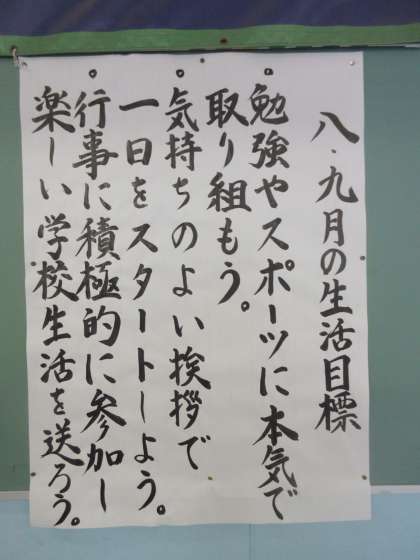 八・九月の生活目標
・勉強やスポーツに本気で
取り組もう。
・気持ちのよい挨拶で
一日をスタートしよう。
・行事に積極的に参加し
楽しい学校生活を送ろう。